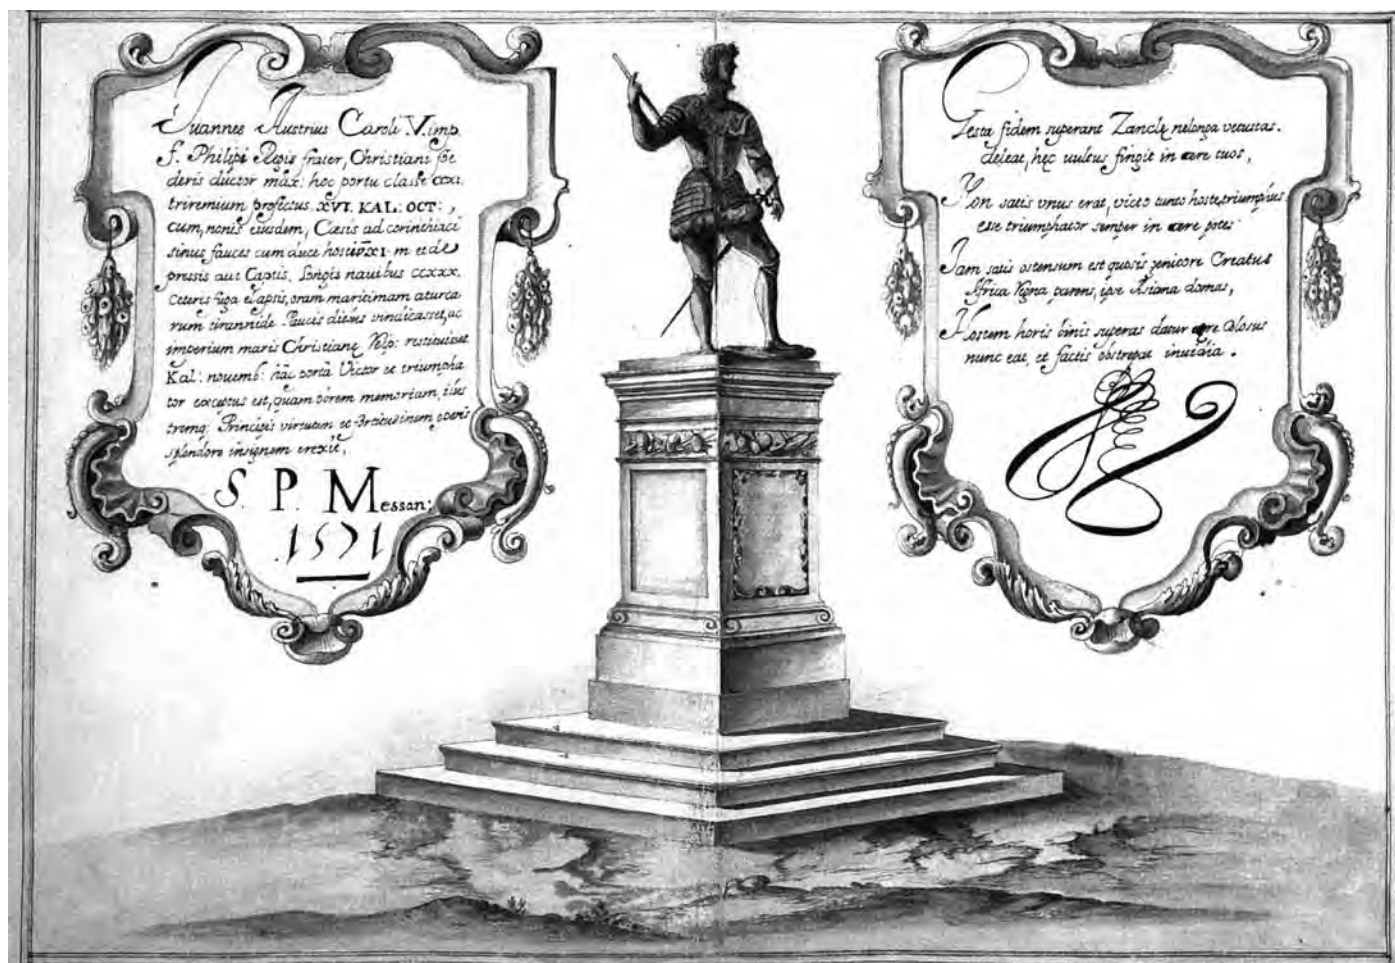 Iuannes Austrius Caroli V. imp.
f. Philipi Regis frater, Christiani foe
deris ductor max: hoc portu classe CCXI.
triremium profectus. XVI. KAL: OCT: ,
cum, nonis eiusdem, Cæsis ad corinthiaci
sinus fauces cum duce hostiū XI. m et de
pressis aut Captis, longis navibus CCXXX.
Ceteris fuga elapsis, oram maritimam a turca
rum tirannide Paucis diebus vindicasset, ac
imperium maris Christianę Resp: restituisset
Kal: novemb: hāc portā Victor et triumpha
tor exceptus est, quam obrem memoriam,
Principis virtutem et operis
splendore insignem erexit,
S. P. Messan:
1571
Gesta fidem superant Zanclę ne longa vetustas.
deleat, hęc vultus fingit in ære tuos,
Non satis vnus erat, victo tanto hoste, triumphus
esse triumphator semper in ære potes
Iam satis ostensum est quo sis genitore Creatus
Africa Regna parens, ipse Asiana domas,
Hostem horis binis superas datur ęre Colosus
nunc eat, et factis obstrepat inuidia.